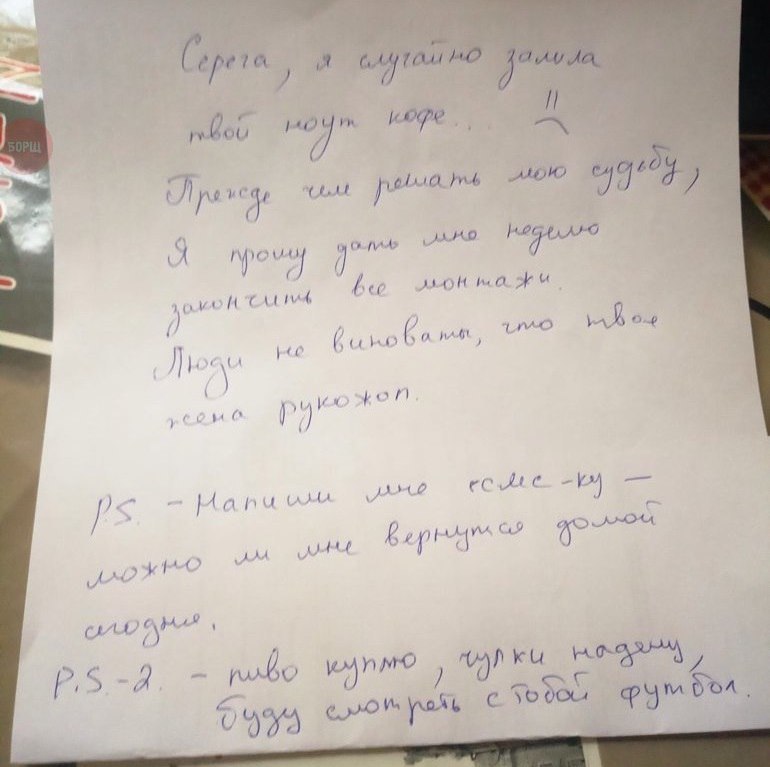 БОРЩ
Серега, я случайно залила
твой ноут кофе...
Прежде чем решать мою судьбу,
Я прошу дать мне неделю
закончить все монтажи.
Люди не виноваты, что твоя
жена рукожоп.
P.S. - Напиши мне смс-ку –
можно ли мне вернутся домой
сегодня.
P.S.-2. - пиво куплю, чулки надену,
буду смотреть с тобой футбол.